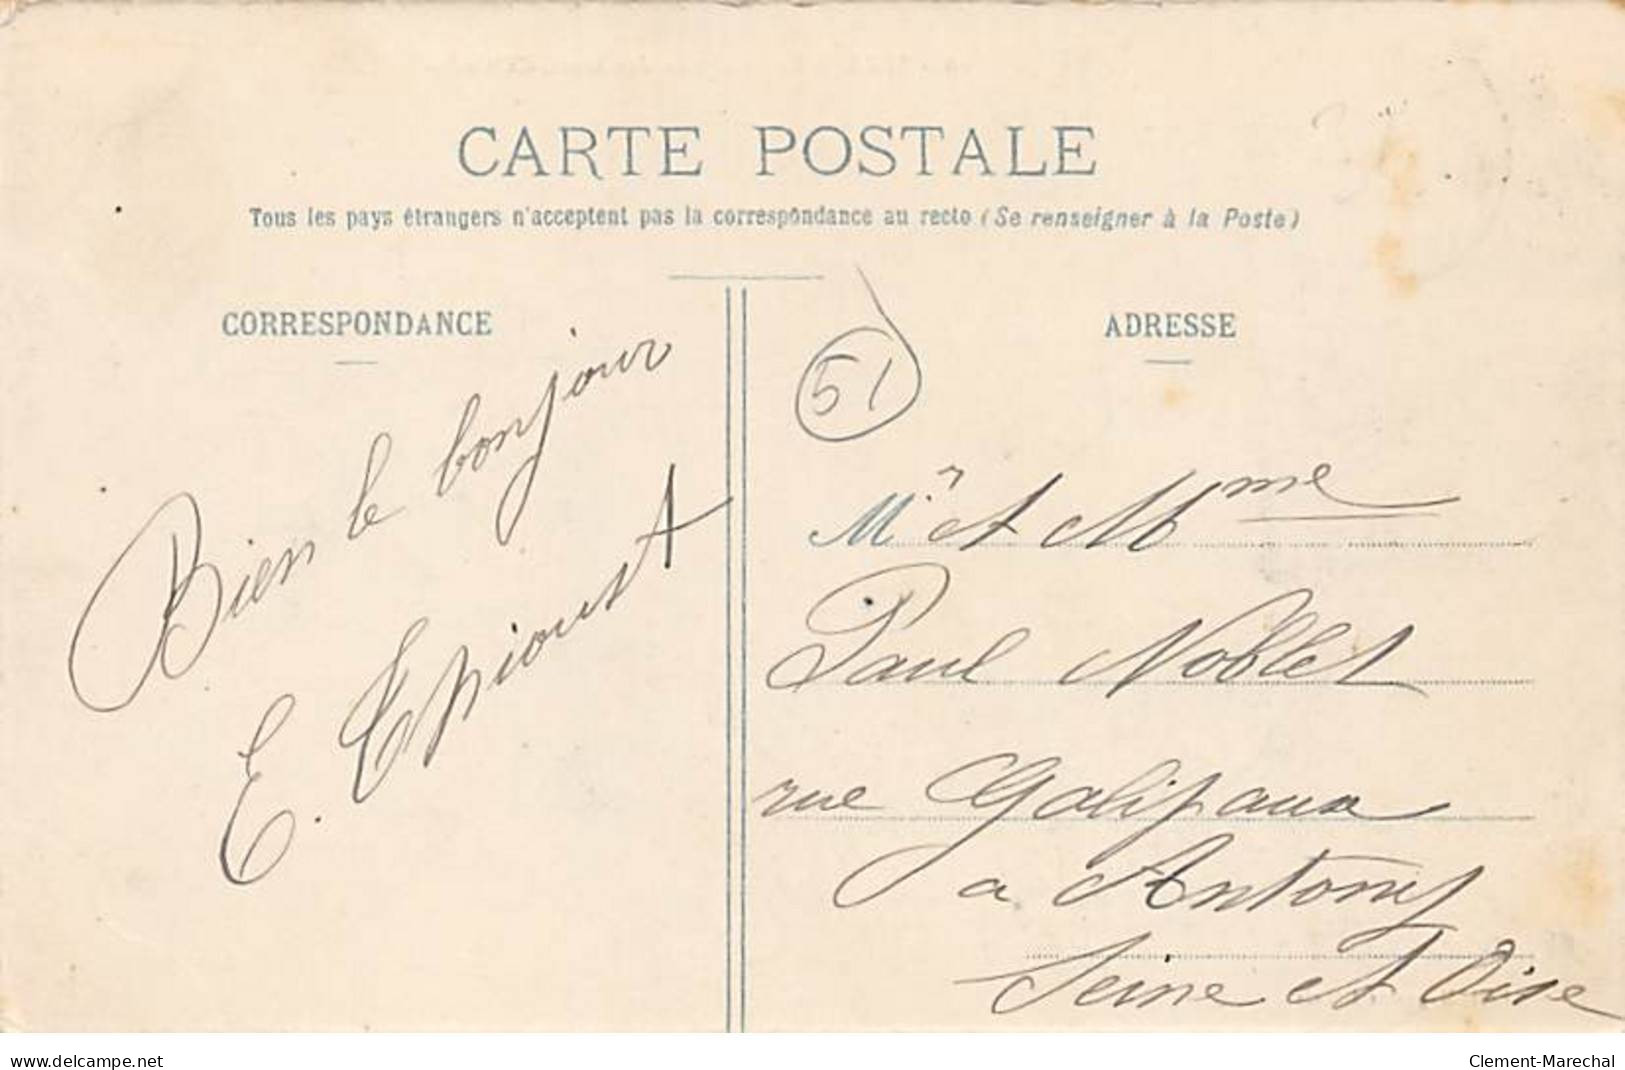 CARTE POSTALE
Tous les pays étrangers n'acceptent pas la correspondance au recto (Se renseigner à la Poste)
CORRESPONDANCE
Bien le bonjour
E.
ADRESSE
51
Mr et Mme
Paul Noblet
rue Galipaux
a Antony
Seine et Oise
www.delcampe.net
Clement-Marechal